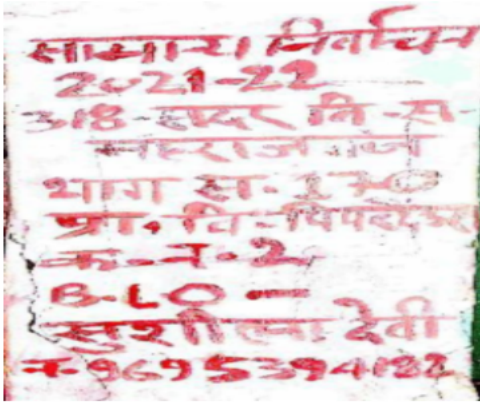 सामान्य निर्वाचन
2021-22
318-सदर वि.स.
महराजगंज
भाग सं. 170
प्रा. वि.
क. नं. 2
B.L.O -
सुशीला देवी
नं. 9695394122